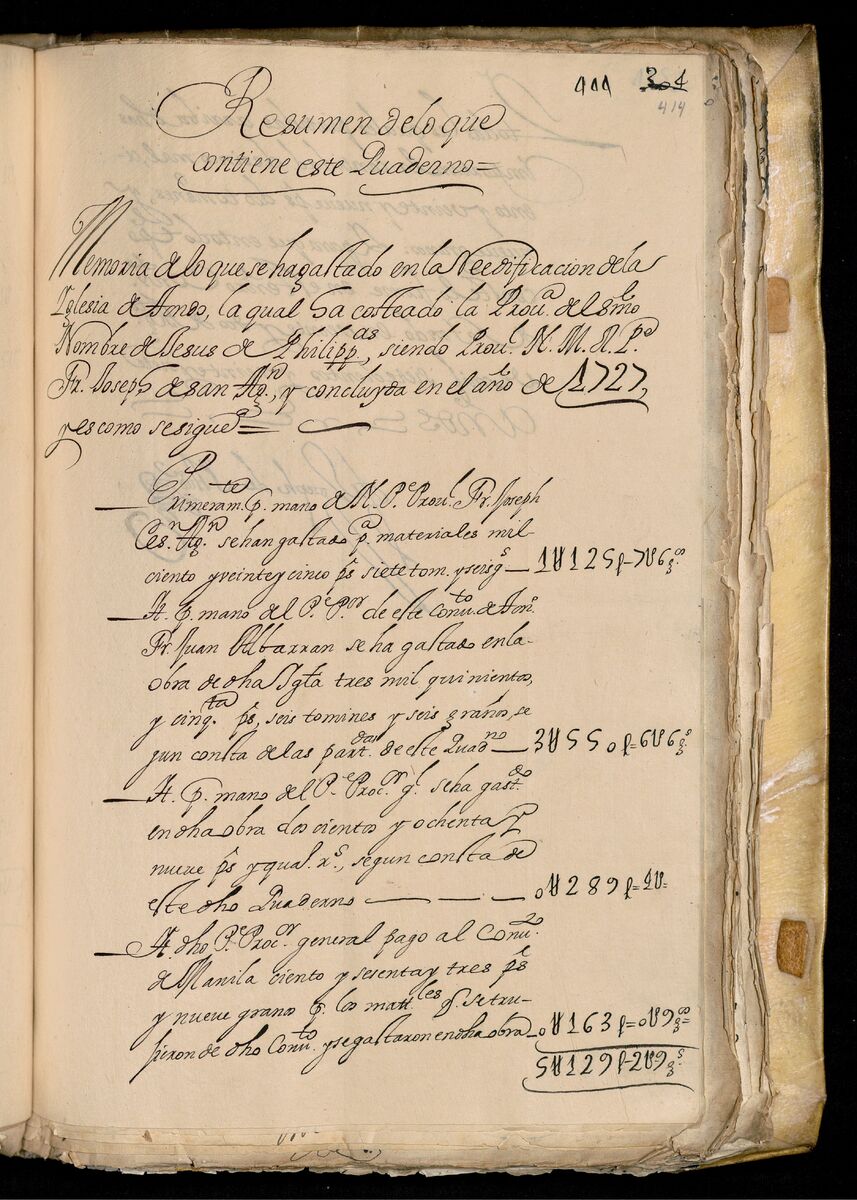 411 304
414
Resumen de lo que
contiene este Quaderno=
Memoria de lo que se ha gastado en la Reedificacion de la
Yglesia de Tondo, la qual ha costeado la Prou.ª del S.mo
Nombre de Jesus de Philipp.as, siendo Prou.l N. M. R. P.e
Fr. Joseph de san Ag.n, y concluyda en el año de 1727,
y es como se sigue=
Primeram.te p. mano de N. P.e Prou.l Fr. Joseph
de S.n Ag.n se han gastado p.a materiales mil
ciento y veinte y cinco p.s siete tom. y seis g.s 1U125p-7U6g.os
It. p. mano del P.e P.or de este Conu.to de Ton.o
Fr. Juan Albarran se ha gastado en la
obra de dha Ygl.a tres mil quinientos,
y cinq.ta p.s, seis tomines y seis granos, se
gun consta de las part.das de este Quad.no 3U550p=6U6g.os
It. p. mano del P.e Proc.or g.l se ha gast.do
en dha obra dos cientos y ochenta y
nueve p.s y quat. r.s, segun consta de
este dho Quaderno 0U289p=4U=
It. dho P.e Proc.or general pago al Conu.to
de Manila ciento y sesenta y tres p.s
y nueve granos p. los mat.les q. se tru-
xeron de dho Conu.to y se gastaron en dha obra 0U163p=0U9g.os=
5U129p-2U9g.s